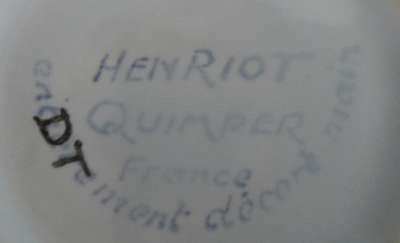 HENRIOT
QUIMPER
France
entièrement décoré main
DT